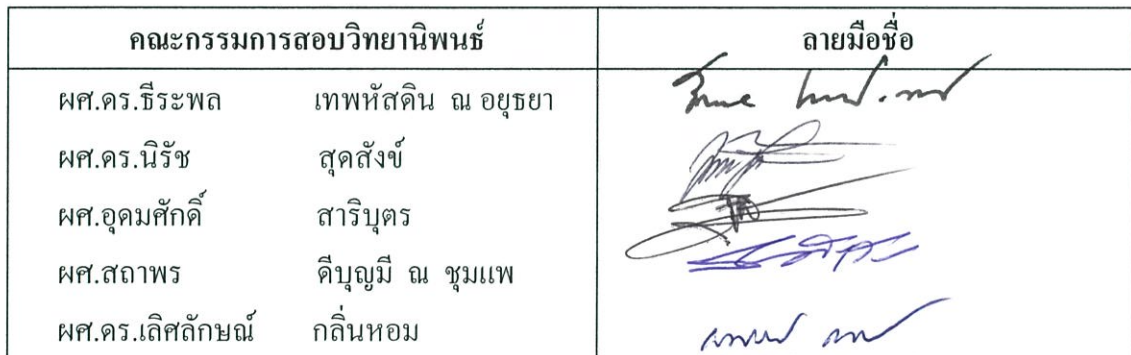 คณะกรรมการสอบวิทยานิพนธ์ ลายมือชื่อ
ผศ.ดร.ธีระพล เทพหัสดิน ณ อยุธยา
ผศ.ดร.นิรัช สุดสังข์
ผศ.อุดมศักดิ์ สาริบุตร
ผศ.สถาพร ดีบุญมี ณ ชุมแพ
ผศ.ดร.เลิศลักษณ์ กลิ่นหอม